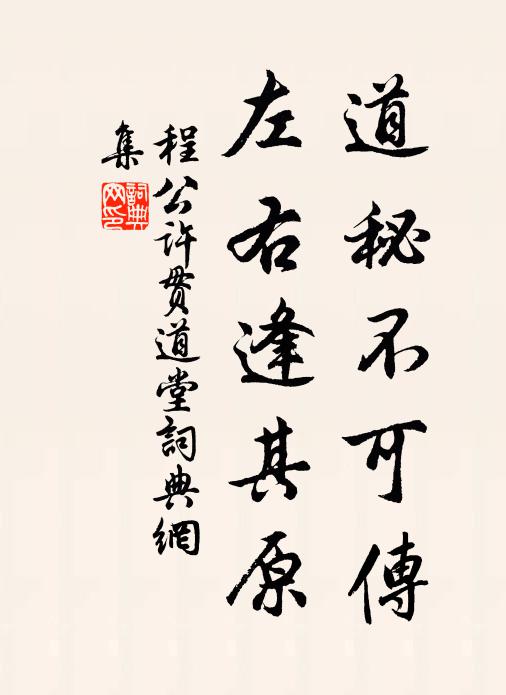 道秘不可傳
左右逢其原
程公許貫道堂詞典網
集
詞典網印